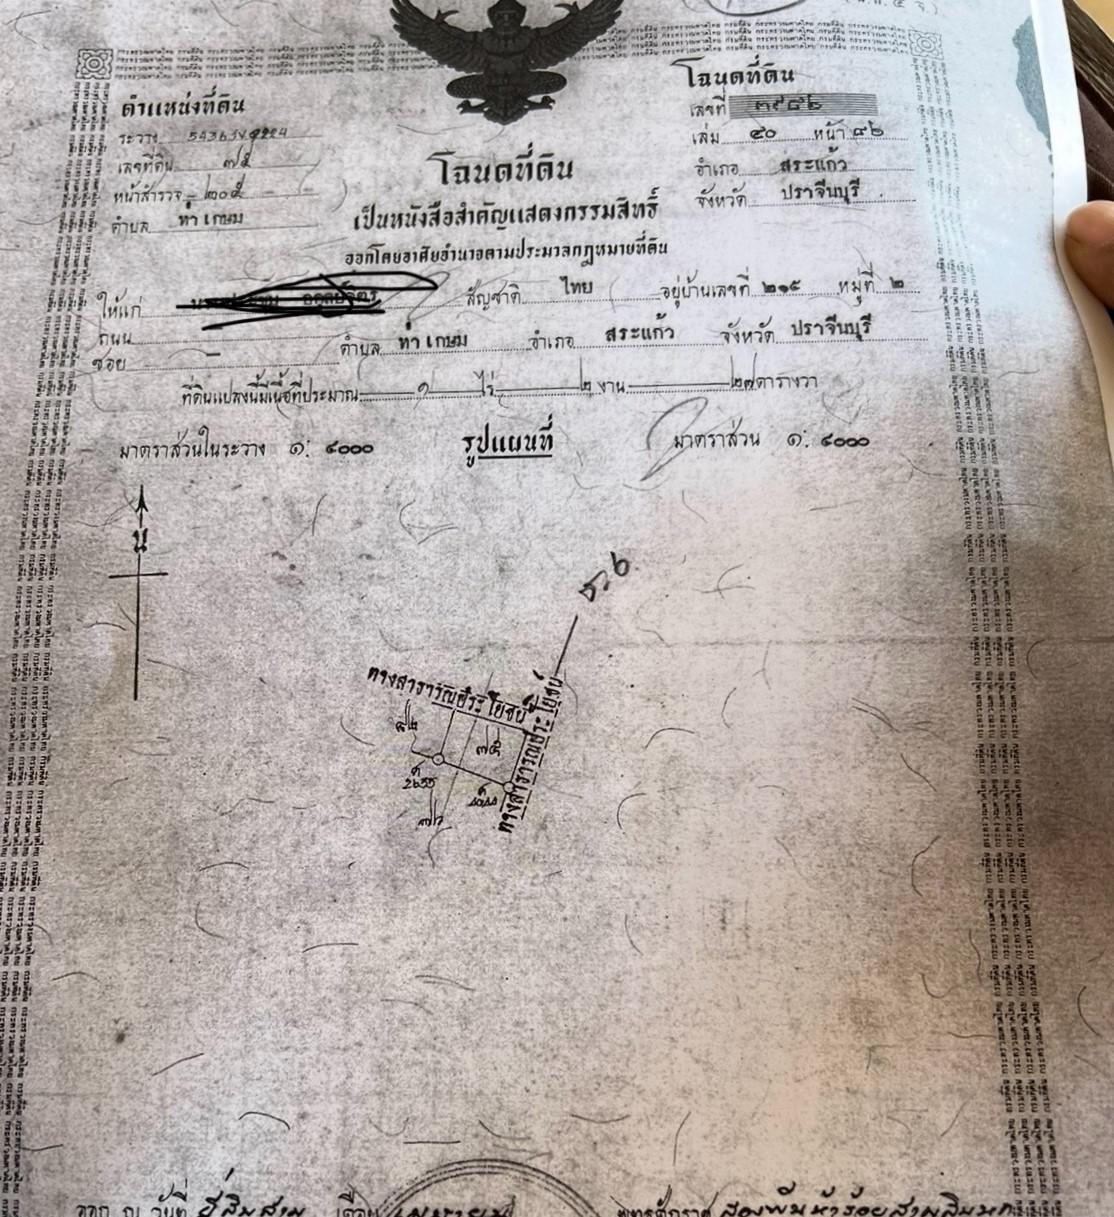 โฉนดที่ดิน
ตำแหน่งที่ดิน
ระวาง
เลขที่ดิน ๗๕
หน้าสำรวจ ๒๐๕
ตำบล ท่าเกษม
เลขที่ ๓๙๘๖
เล่ม ๔๐ หน้า ๘๖
อำเภอ สระแก้ว
จังหวัด ปราจีนบุรี
โฉนดที่ดิน
เป็นหนังสือสำคัญแสดงกรรมสิทธิ์
ออกโดยอาศัยอำนาจตามประมวลกฎหมายที่ดิน
ให้แก่ สัญชาติ ไทย อยู่บ้านเลขที่ ๒๑๕ หมู่ที่ ๒
ถนน
ซอย – ตำบล ท่าเกษม อำเภอ สระแก้ว จังหวัด ปราจีนบุรี
ที่ดินแปลงนี้มีเนื้อที่ประมาณ ๑ ไร่ ๒ งาน ๒๗ ตารางวา
มาตราส่วนในระวาง ๑: ๔๐๐๐ รูปแผนที่ มาตราส่วน ๑: ๔๐๐๐
น
ทางสาธารณประโยชน์
๗๕
ทางสาธารณประโยชน์
ออก ณ วันที่ ยี่สิบสาม เดือน เมษายน พุทธศักราช สองพันห้าร้อยสามสิบหก